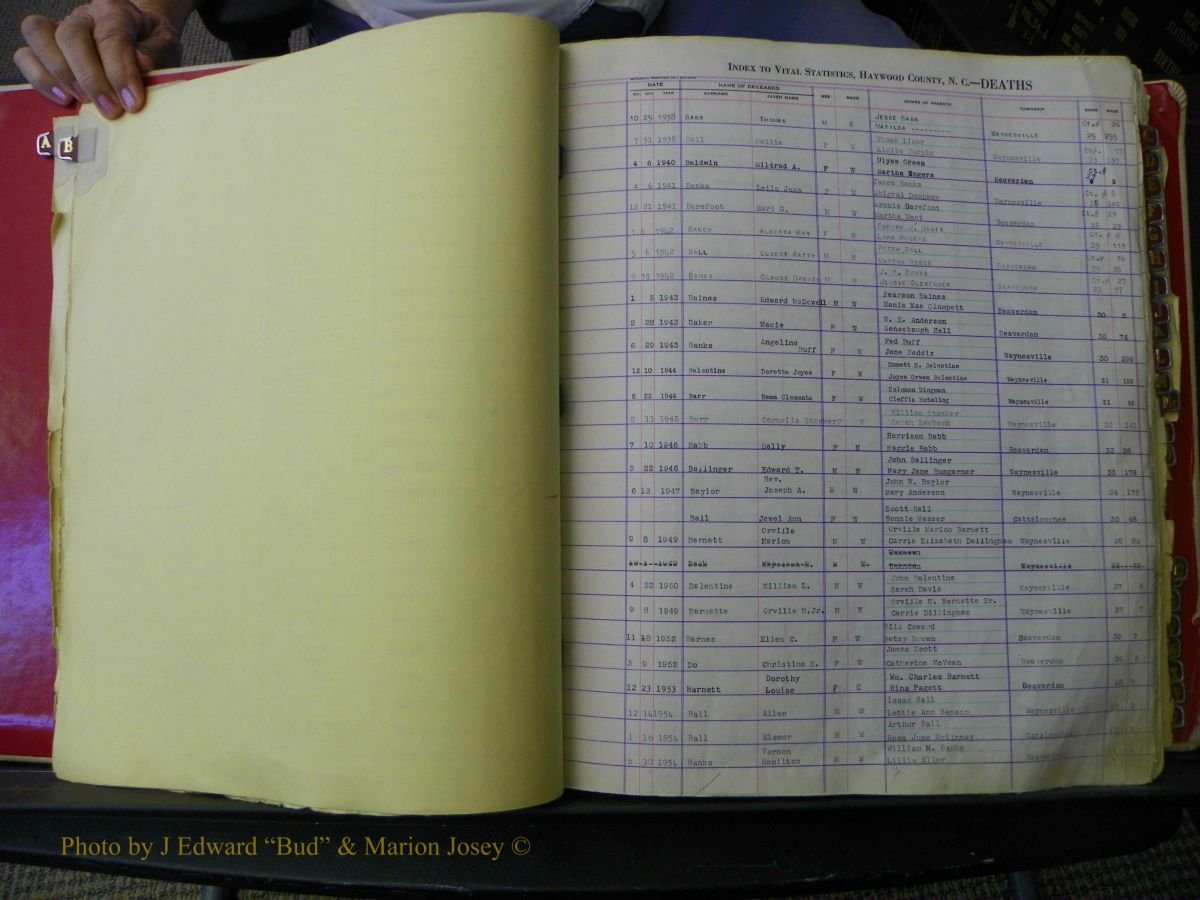 INDEX TO VITAL STATISTICS, HAYWOOD COUNTY, N. C.—DEATHS
DATE NAME OF DECEASED
MO. DAY YEAR SURNAME GIVEN NAME SEX RACE NAMES OF PARENTS TOWNSHIP BOOK PAGE
JESSE BABB Ct.# 26
10 25 1938 BABB THOMAS M MATILDA --------- WAYNESVILLE 25 255
7 31 1938 Ball F W Waynesville 25
Ulyss Green Ct.#
4 6 1940 Baldwin Mildred A. F W Martha Rogers Beaverdam 9
James Banks Ct. # 8
4 6 1941 Banks Leila June F W Abigral Dempsey Waynesville 28 140
Archie Barefoot Ct.# 29
12 21 1941 Barefoot Earl G. M W Martha West Beaverdam 28 29
6 1942 BAKER ALBERTA MAY F LORA ROGERS WAYNESVILLE 29 111
PETER BALL Ct.# 16
5 6 1942 BALL ELBERT PATTY M W MARTHA REECE BEAVERDAM 29 26
J. H. BANKS Ct.# 27
1942 BANKS CLAUDE DANIEL M W JESSIE CLEVENGER BEAVERDAM 29 57
Pearson Baines
1 5 1943 Baines Edward McDowell M W Nania Mae Clampett Beaverdam 30 5
M. H. Anderson
2 28 1943 Baker Macie F W Sensebaugh Hall Beaverdam 30 74
Angeline Fed Buff
6 29 1943 Banks Buff F W Jane Poddix Waynesville 30 299
Emmett H. Balentine
12 10 1944 Balentine Doretta Joyce F W Joyce Green Balentine Waynesville 31 189
Solomon Dingman
5 23 1944 Barr Emma Clements F W Cleffie Koteling Waynesville 31 95
William Stecker
8 11 1945 Barr Cornelia Stecker F W Sarah Laubach Waynesville 32 141
Harrison Babb
7 10 1946 Babb Sally F N Maggie Babb Beaverdam 33 26
John Ballinger
3 22 1946 Ballinger Edward T. M W Mary Jane Bumgarner Waynesville 33 178
Rev. John W. Baylor
6 13 1947 Baylor Joseph A. M W Mary Anderson Waynesville 34 175
Scott Ball
Ball Jewel Ann F W Bonnie Messer Cattaloochee 35 48
Orville Orville Marion Barnett
9 8 1949 Barnett Marion M W Carrie Elizabeth Dellingham Waynesville 36 82
Unknown
Beck M W- Unknown Waynesville
John Balentine
4 23 1950 Balentine William L. M W Sarah Davis Waynesville 37 4
Orville M. Barnette Sr.
9 8 1949 Barnette Orville M.Jr. M W Carrie Dillingham Waynesville 37 7
Bill Coward
11 18 1952 Barnes Ellen C. F W Betsy Brown Beaverdam 39 7
James Scott
3 9 1952 Do Christina S. F W Catherine McVean Beaverdam 39 8
Dorothy Wm. Charles Barnett
12 23 1953 Barnett Louise F C Nina Pagett Beaverdam 40 2
Isaac Ball
12 14 1954 Ball Allen M W Lettie Ann Benson Waynesville
Arthur Ball
1 16 1954 Ball Elsmer M W Rosa June McKinney Catalooche
Vernon William M. Banks
6 30 1954 Banks Hamilton M W Lillie Eller Beaverdam
A B
Photo by J Edward “Bud” & Marion Josey ©